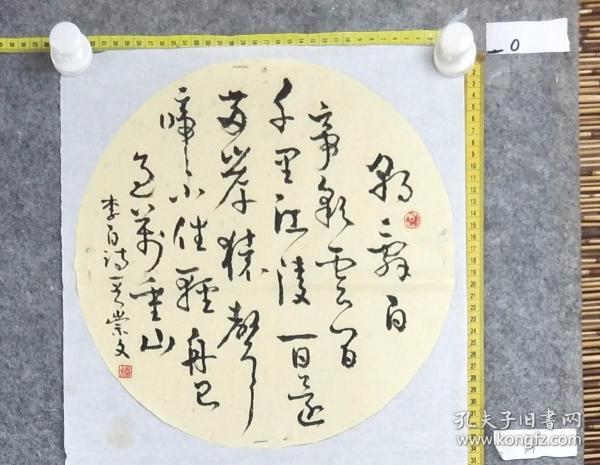 朝辞白
帝彩雲间
千里江陵一日还
两岸猿聲
啼不住轻舟已
过萬重山
李白诗吴崇文
0
孔夫子旧书网
www.kongfz.com